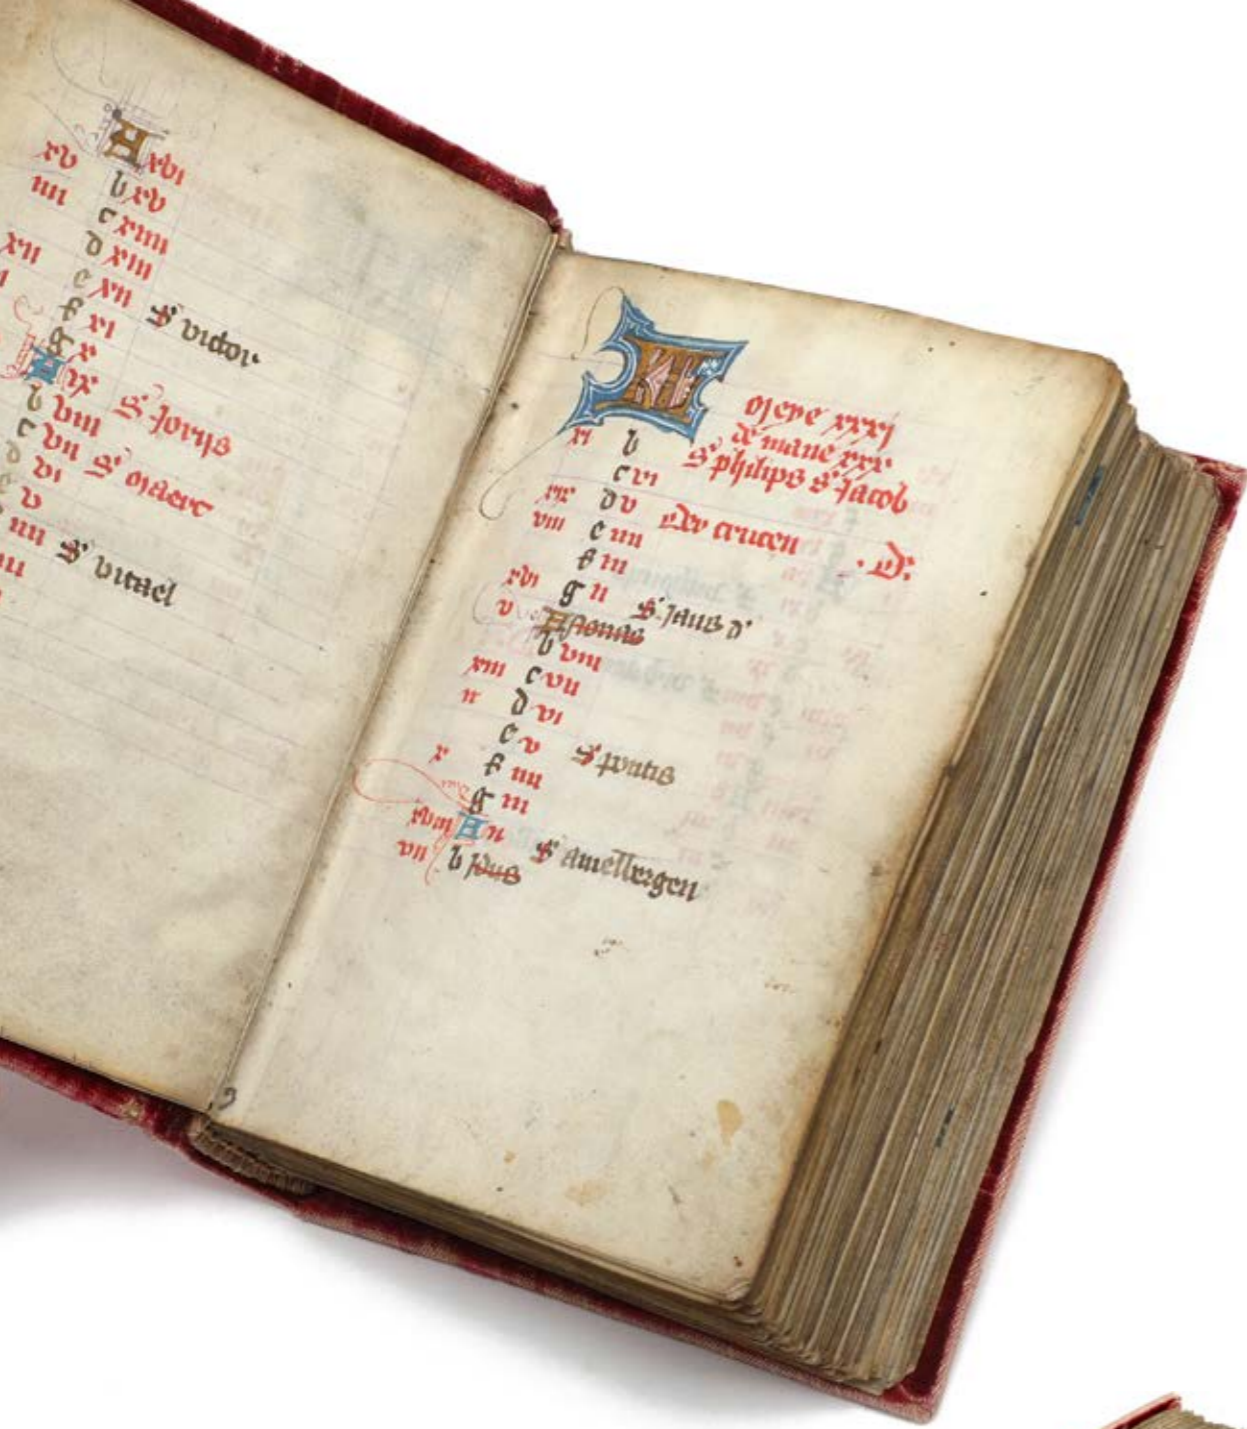 A xvi
xv b xv
iiii c xiiii
d xiii
xii e xii S' victor
i f xi
g x
A ix S' Jorijs
b viii
c vii S' marc
d vi
e v
iiii S' vitael
iii
KL meye xxxi
de mane xxx
xi b S' philips S' Jacob
c vi
xix d v crucen
viii e iiii
f iii
xvi g ii S' Jans d'
v A Nonas
b viii
xiii c vii
ii d vi
e v S' pontis
x f iiii
g iii
xviii A ii
vii b Idus S' Amelbergen